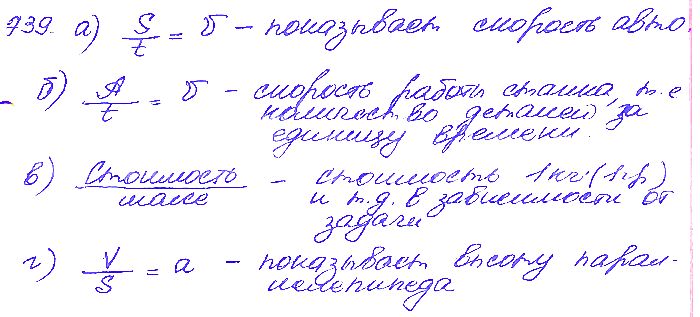 739. а) S/t = б – показывает скорость авто.
б) A/t = б – скорость работы станка, т.е
количество деталей за
единицу времени.
в) Стоимость/масса – стоимость 1кг (1гр)
и т.д. в зависимости от
задачи
г) V/S = a – показывает высоту парал-
лелепипеда